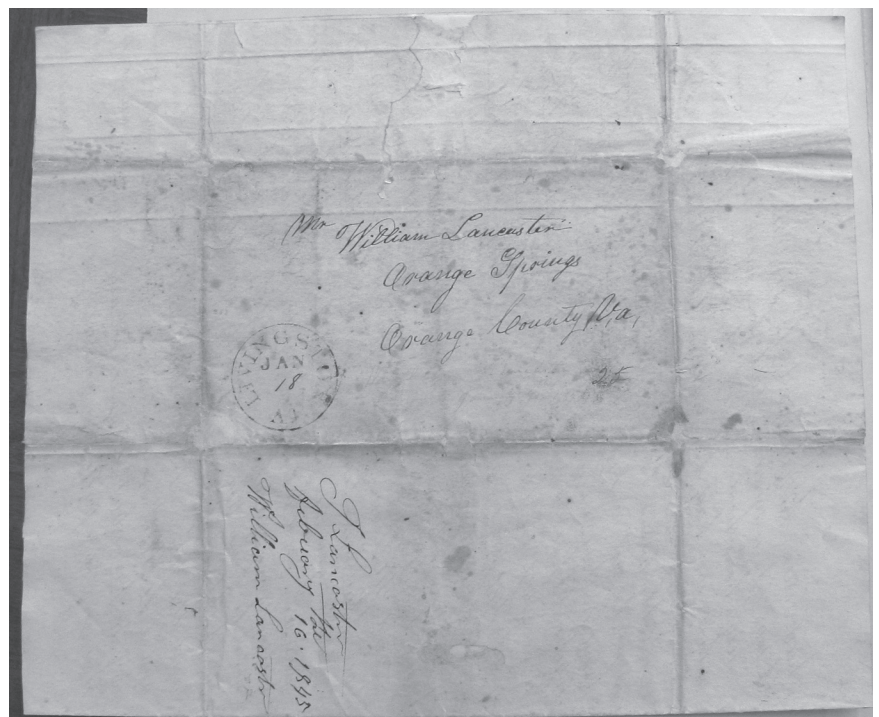 Mr William Lancaster
Orange Springs
Orange County Va,
25
LIVINGSTON
JAN
18
Al
J Lancaster
February the 16. 1845
William Lancaster